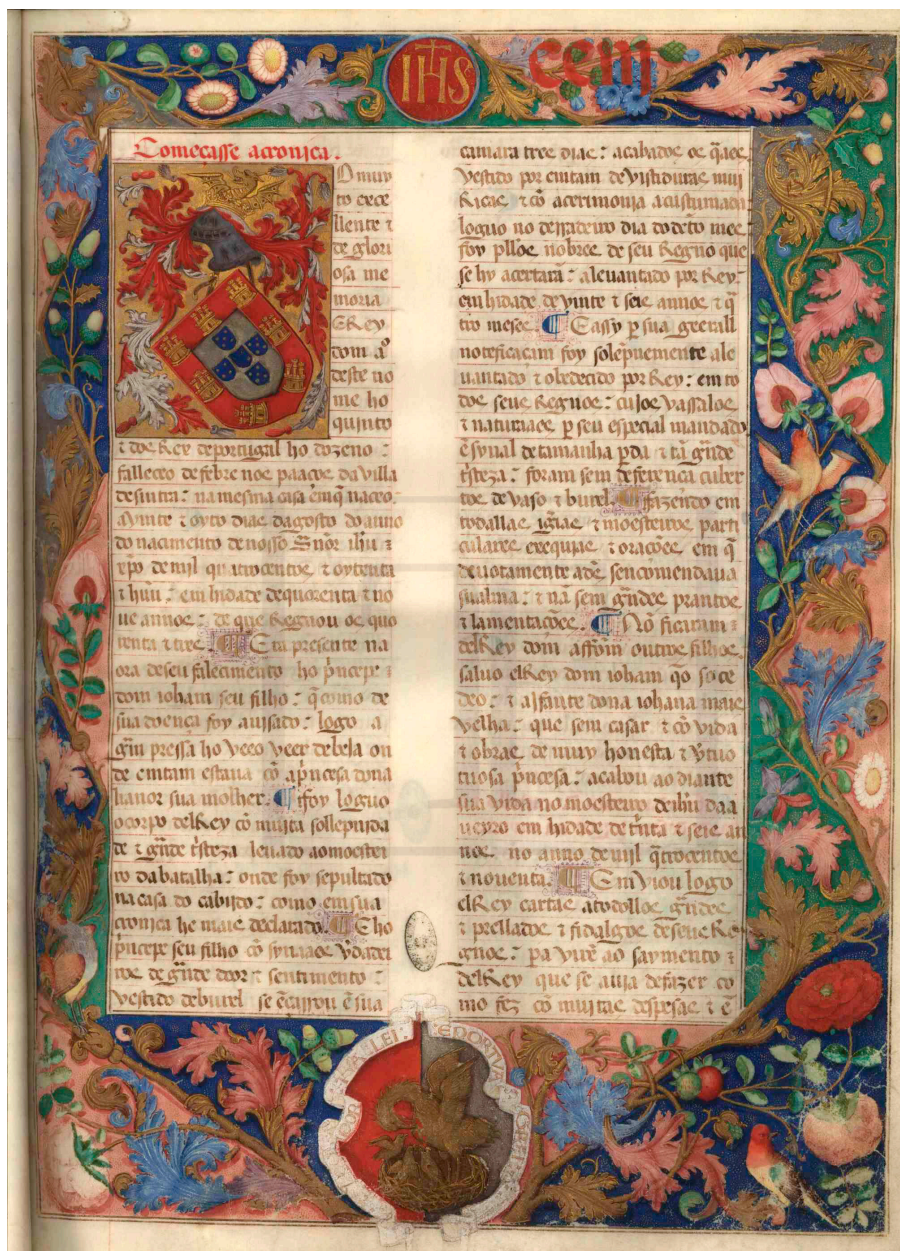 IHS
cem
Começasse acronica.
O muy
to exce
llente ⁊
de glori
osa me
moria
ElRey
dom aº
deste no
me ho
quinto
⁊ dos Rey deportugal ho dozeno :
falleceo de febre nos paaços da villa
desintra : na mesma casa ẽmq̃ naceo
a vinte ⁊ oyto dias dagosto do anno
do nacimento de nosso Sñor ihũ ⁊
xp̃o de mil quatrocentos ⁊ oytenta
⁊ hũu : em hidade dequorenta ⁊ no
ue annos : de que Regnou os quo
renta ⁊ tres E ta presente na
ora deseu falecimento ho p̃ncepe :
dom ioham seu filho : q̃ como de
sua doença foy auisado : logo a
grã pressa ho veeo veer debeja on
de emtam estaua cõ ap̃ncesa dona
lianor sua molher. E foy loguo
ocorpo delRey cõ muita sollepnida
de ⁊ grñde t̃steza leuado aomoestei
ro dabatalha : onde foy sepultado
na casa do cabijdo : como em sua
cronica he mais declarado E ho
p̃ncepe seu filho cõ synaaes vdadei
ros de grñde door ⁊ sentimento :
vestido deburel se ẽcerrou ẽ sua
camara tres dias : acabados os q̃aes
vestido por emtam de vistiduras mui
Ricas ⁊ cõ acerimonia acustumada
loguo no derradeiro dia do dito mes
foy pllos nobres de seu Regno que
se hy acertarã : aleuantado por Rey
em hidade de vinte ⁊ seis annos ⁊ q̃
tro meses. E assy p sua geerall
noteficaçam foy solẽpnemente ale
uantado ⁊ obedecido por Rey : em to
dos seus Regnos : cujos vassalos
⁊ naturaaes p seu especial mandado
ẽ synal de tamanha pda ⁊ tã grñde
t̃steza : foram sem deferença cuber
tos de vaso ⁊ burel E fazendo em
todallas igr̃as ⁊ moesteiros parti
culares exequias ⁊ orações em q̃
deuotamente a ds̃ sencomendaua
sualma : ⁊ nã sem grñdes prantos
⁊ lamentações. Nõ ficaram
delRey dom affom outros filhos
saluo elRey dom ioham q̃o soce
deo : ⁊ aIfante dona iohana mais
velha : que sem casar ⁊ cõ vida
⁊ obras de muy honesta ⁊ v̾tuo
tuosa p̃ncesa : acabou ao diante
sua vida no moesteiro de ihũ daa
ueyro em hidade de t̃nta ⁊ seis an
nos no anno de mil q̃trocentos
⁊ nouenta. Em viou logo
elRey cartas atodollos grñdes
⁊ prellados ⁊ fidalgos deseus Re
gnos : pa virẽ ao saymento
delRey que se auia defazer co
mo fez cõ muitas despesas ⁊ ẽ